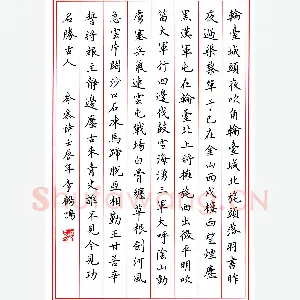 輪臺城頭夜吹角輪臺城北旄頭落羽書昨
夜過渠黎單于已在金山西戍樓西望煙塵
黑漢軍屯在輪臺北上將擁旄西出征平明吹
笛大軍行四邊伐鼓雪海湧三軍大呼陰山動
虜塞兵氣連雲屯戰場白骨纏草根劍河風
急雲片闊沙口石凍馬蹄脫亞相勤王甘苦辛
誓將報主靜邊塵古來青史誰不見今見功
名勝古人 岑參詩壬辰年李
ShuFawang.CN